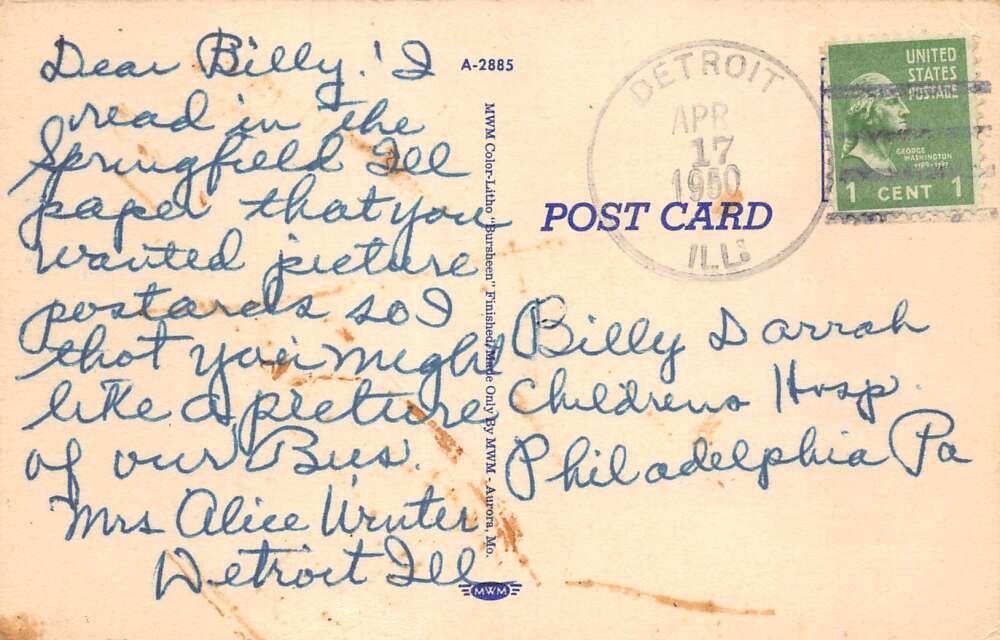 Dear Billy! I
read in the
Springfield Ill
paper that you
wanted picture
postards so I
thot you might
like a picture
of our Bus.
Mrs Alice Winter
Detroit Ill
A-2885
MWM Color-Litho "Bursheen" Finished, Made Only By MWM - Aurora, Mo.
MWM
POST CARD
DETROIT
APR
17
1950
ILL.
UNITED
STATES
POSTAGE
GEORGE
WASHINGTON
1 CENT 1
Billy Darrah
Childrens Hosp.
Philadelphia Pa